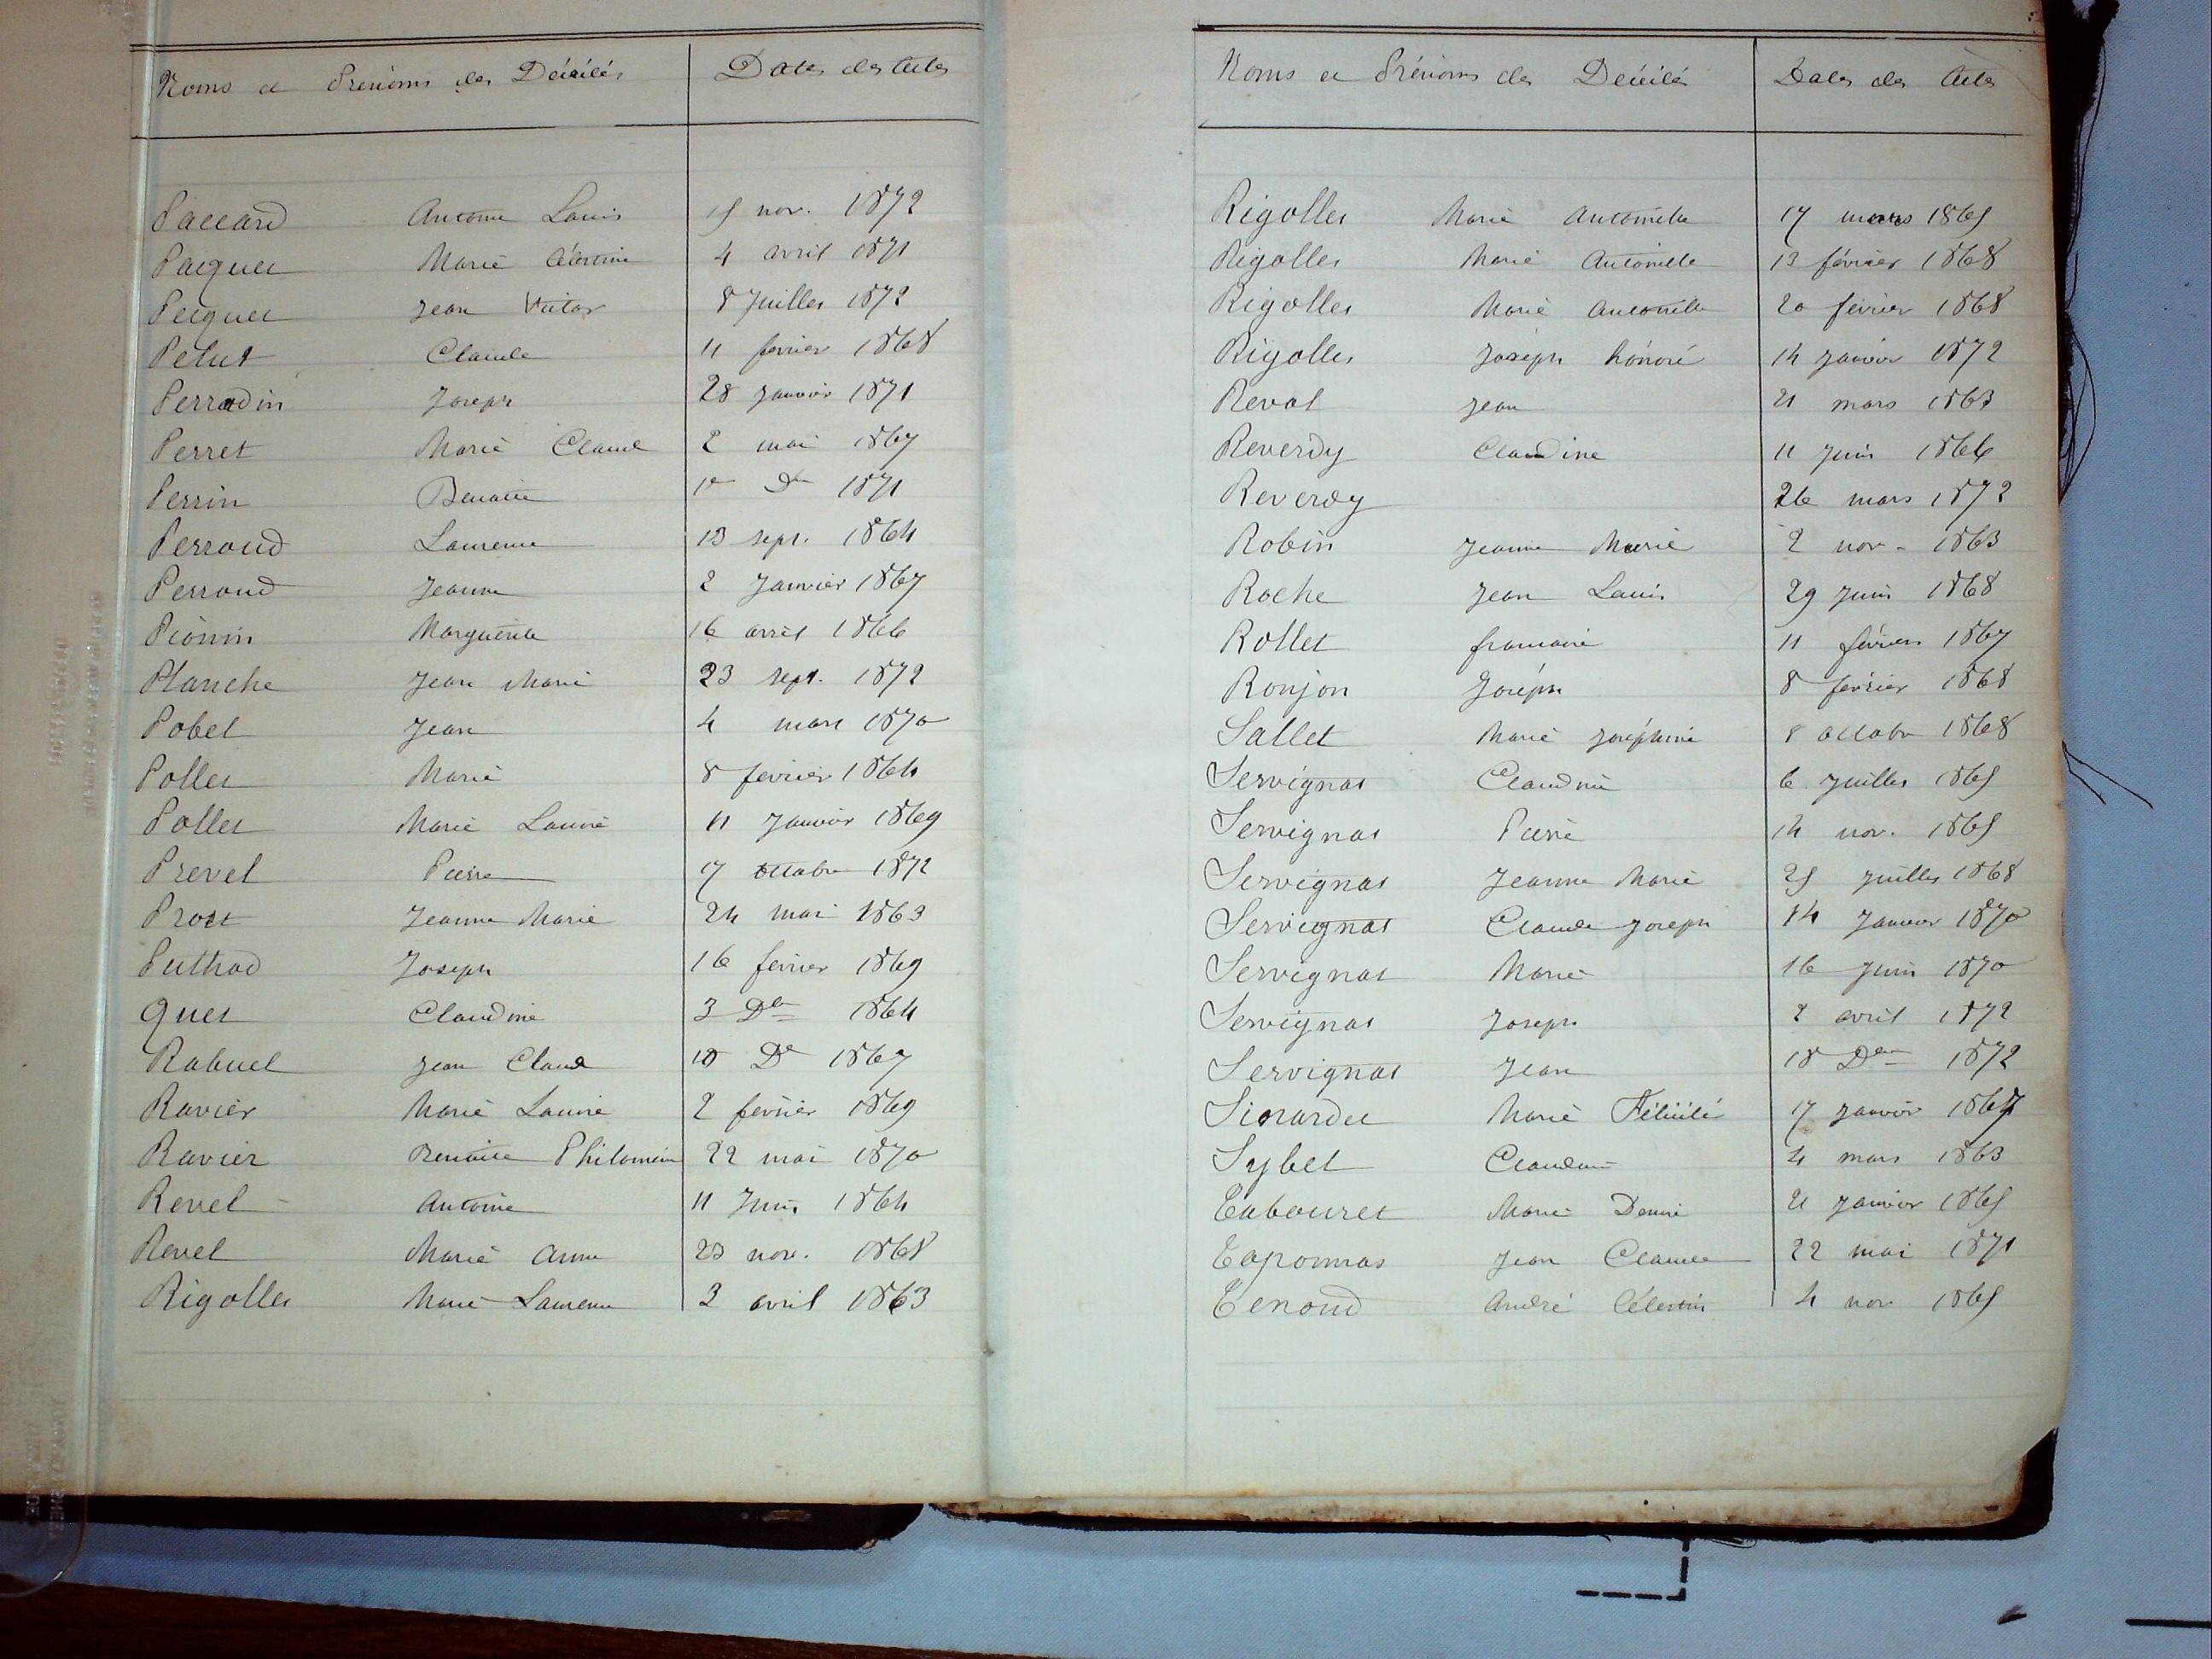 Noms et Prénoms des Décédés Dates des Actes
Paccard Antoine Louis 15 nov. 1872
Pacquet Marie Célestine 4 avril 1871
Pecquet Jean Victor 8 Juillet 1872
Pelut Claude 11 fevrier 1868
Perradin Joseph 28 Janvier 1871
Perret Marie Claud 2 mai 1867
Perrin Benoite 1er Dre 1871
Perroud Laurence 13 sept. 1864
Perroud Jeanne 2 Janvier 1867
Pionin Marguerite 16 avril 1866
Planche Jean Marie 23 sept. 1872
Pobel Jean 4 mars 1870
Pollet Marie 8 fevrier 1864
Pollet Marie Louise 11 Janvier 1869
Prevel Pierre 17 octobre 1872
Prost Jeanne Marie 24 mai 1863
Puthod Joseph 16 fevrier 1869
Quet Claudine 3 Dre 1864
Rabuel Jean Claud 10 Dre 1867
Ravier Marie Louise 2 fevrier 1869
Ravier Benoite Philomène 22 mai 1870
Revel Antoine 11 Juin 1864
Revel Marie Anne 23 nov. 1868
Rigollet Marie Laurence 3 avril 1863
Noms et Prénoms des Décédés Dates des Actes
Rigollet Marie Antoinette 17 mars 1865
Rigollet Marie Antoinette 13 février 1868
Rigollet Marie Antoinette 20 février 1868
Rigollet Joseph honoré 14 Janvier 1872
Reval Jean 21 mars 1863
Reverdy Claudine 11 Juin 1866
Reverdy 26 mars 1872
Robin Jeanne Marie 2 nov. 1863
Roche Jean Louis 29 Juin 1868
Rollet francoise 11 février 1867
Ronjon Joseph 8 fevrier 1868
Sallet Marie Joséphine 8 octobre 1868
Servignat Claudine 6 Juillet 1865
Servignat Pierre 14 nov. 1865
Servignat Jeanne Marie 25 Juillet 1868
Servignat Claude Joseph 14 Janvier 1870
Servignat Marie 16 Juin 1870
Servignat Joseph 2 avril 1872
Servignat Jean 18 Dre 1872
Sirardet Marie Félicité 17 Janvier 1867
Sybel Claudine 4 mars 1863
Tabouret Marie Denise 21 Janvier 1865
Taponnas Jean Claude 22 mai 1871
Tenoud André Célestin 4 nov 1865